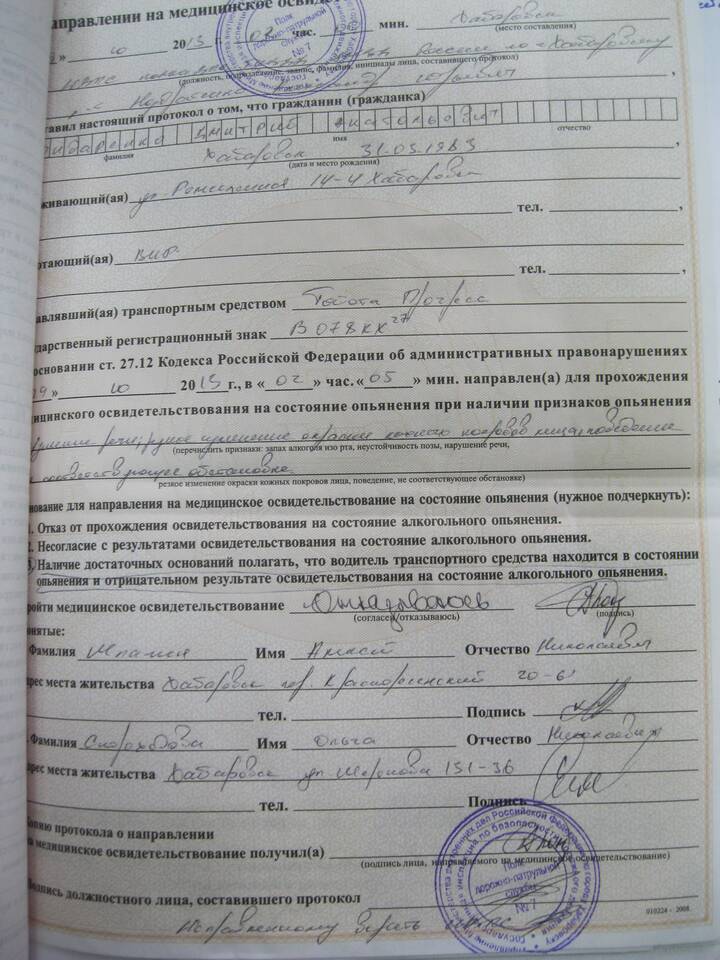 направлении на медицинское освид
» 10 2013 г. 02 час. мин. Хабаровск
(место составления)
ИДПС полка России по г. Хабаровску
(должность, подразделение, звание, фамилия, инициалы лица, составившего протокол)
тавил настоящий протокол о том, что гражданин (гражданка)
Дмитрий Анатольевич
фамилия имя отчество
Хабаровск 31-03-1983
(дата и место рождения)
живающий(ая) ул. 14-4 Хабаровск
тел. ,
отающий(ая)
тел. ,
авлявший(ая) транспортным средством Тойота Прогресс
ударственный регистрационный знак В 078 КХ 27
основании ст. 27.12 Кодекса Российской Федерации об административных правонарушениях
9 » 10 2013 г., в « 02 » час. « 05 » мин. направлен(а) для прохождения
ицинского освидетельствования на состояние опьянения при наличии признаков опьянения
речи, резкое изменение окраски кожных покровов лица, поведение
(перечислить признаки: запах алкоголя изо рта, неустойчивость позы, нарушение речи,
не соответствующее обстановке
резкое изменение окраски кожных покровов лица, поведение, не соответствующее обстановке)
нование для направления на медицинское освидетельствование на состояние опьянения (нужное подчеркнуть):
1. Отказ от прохождения освидетельствования на состояние алкогольного опьянения.
2. Несогласие с результатами освидетельствования на состояние алкогольного опьянения.
3. Наличие достаточных оснований полагать, что водитель транспортного средства находится в состоянии
опьянения и отрицательном результате освидетельствования на состояние алкогольного опьянения.
ройти медицинское освидетельствование Отказываюсь
(согласен/отказываюсь) (подпись)
онятые:
Фамилия Имя Алексей Отчество Николаевич
рес места жительства Хабаровск пер. Краснореченский 20-61
тел. Подпись
Фамилия Имя Ольга Отчество Николаевна
рес места жительства Хабаровск ул 131-36
тел. Подпись
Копию протокола о направлении
на медицинское освидетельствование получил(а)
(подпись лица, направляемого на медицинское освидетельствование)
Подпись должностного лица, составившего протокол
010224 - 2008.
Исправленному верить
Полк дорожно-патрульной службы №7